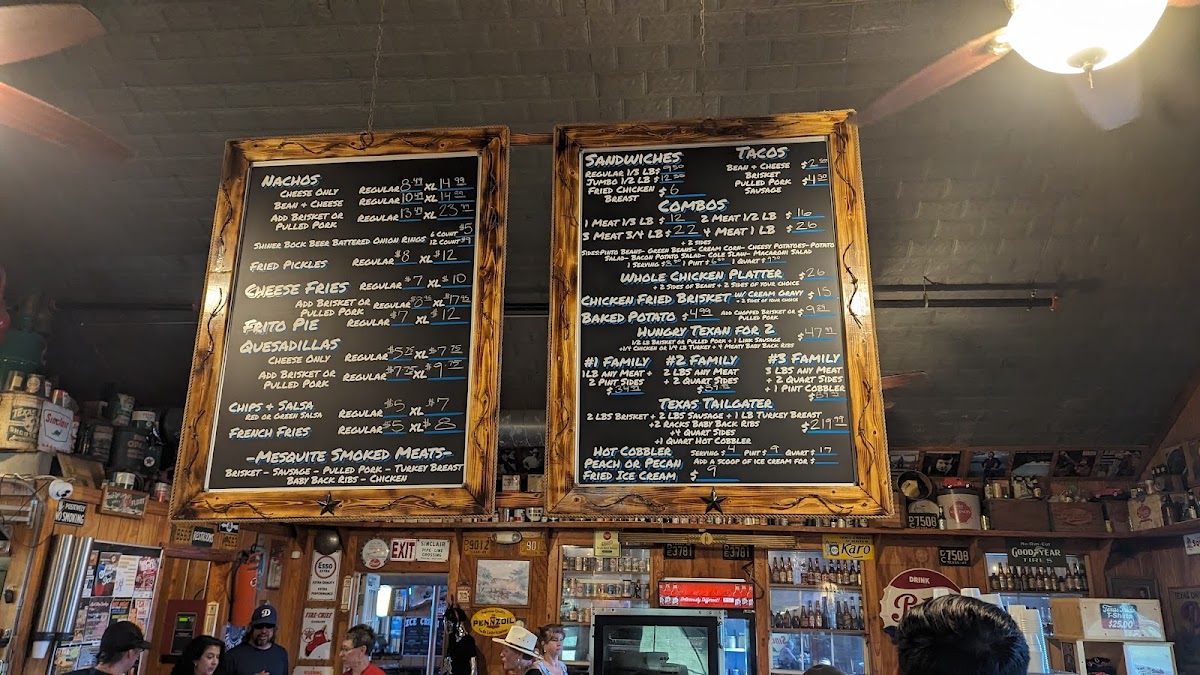 NACHOS
CHEESE ONLY REGULAR 8.49 XL 14.99
BEAN & CHEESE REGULAR 10.49 XL 14.99
ADD BRISKET OR REGULAR 13.49 XL 23.99
PULLED PORK
SHINER BOCK BEER BATTERED ONION RINGS 6 COUNT $5
12 COUNT $9
FRIED PICKLES REGULAR $8 XL $12
CHEESE FRIES REGULAR $7 XL $10
ADD BRISKET OR REGULAR XL
PULLED PORK
FRITO PIE REGULAR $7 XL $12
QUESADILLAS
CHEESE ONLY REGULAR $5.75 XL $7.75
ADD BRISKET OR REGULAR $7.75 XL $9.75
PULLED PORK
CHIPS & SALSA REGULAR $5 XL $7
RED OR GREEN SALSA
FRENCH FRIES REGULAR $5 XL $8
-MESQUITE SMOKED MEATS-
BRISKET - SAUSAGE - PULLED PORK - TURKEY BREAST
BABY BACK RIBS - CHICKEN
SANDWICHES
REGULAR 1/3 LB $ 9.50
JUMBO 1/2 LB $ 12.50
FRIED CHICKEN $ 6
BREAST
TACOS
BEAN & CHEESE $2.50
BRISKET
PULLED PORK $4.50
SAUSAGE
COMBOS
1 MEAT 1/3 LB $ 12 2 MEAT 1/2 LB $ 16
3 MEAT 3/4 LB $ 22 4 MEAT 1 LB $ 26
+ 2 SIDES
SIDES: PINTO BEANS- GREEN BEANS- CREAM CORN- CHEESY POTATOES- POTATO
SALAD- BACON POTATO SALAD- COLE SLAW- MACARONI SALAD
1 SERVING 1 PINT 1 QUART
WHOLE CHICKEN PLATTER $26
+ 2 SIDES OF BEANS + 2 SIDES OF YOUR CHOICE
CHICKEN FRIED BRISKET W/ CREAM GRAVY $15
+ 2 SIDES OF YOUR CHOICE
BAKED POTATO $4.99 ADD CHOPPED BRISKET OR $9.29
PULLED PORK
HUNGRY TEXAN FOR 2 $47.99
1/2 LB BRISKET OR PULLED PORK + 1 LINK SAUSAGE
+1/4 CHICKEN OR 1/4 LB TURKEY + 4 MEATY BABY BACK RIBS
#1 FAMILY
1LB ANY MEAT +
2 PINT SIDES
#2 FAMILY
2 LBS ANY MEAT
+ 2 QUART SIDES
#3 FAMILY
3 LBS ANY MEAT
+ 2 QUART SIDES
+ 1 PINT COBBLER
TEXAS TAILGATER
2 LBS BRISKET + 2 LBS SAUSAGE + 1 LB TURKEY BREAST
+2 RACKS BABY BACK RIBS $219.99
+4 QUART SIDES
+1 QUART HOT COBBLER
HOT COBBLER SERVING $ 4 PINT $ 9 QUART $ 17
PEACH OR PECAN ADD A SCOOP OF ICE CREAM FOR $
FRIED ICE CREAM $
TEXAS
Sinclair
POSITIVELY
NO SMOKING
Esso
EXTRA
FIRE-CHIEF
EXIT
SINCLAIR
PIPE LINE
CROSSING
PENNZOIL
ICE CREAM
Karo
DRINK
GOODYEAR
TIRES
7508
7508
Texas
T-SHIRTS
$25.00